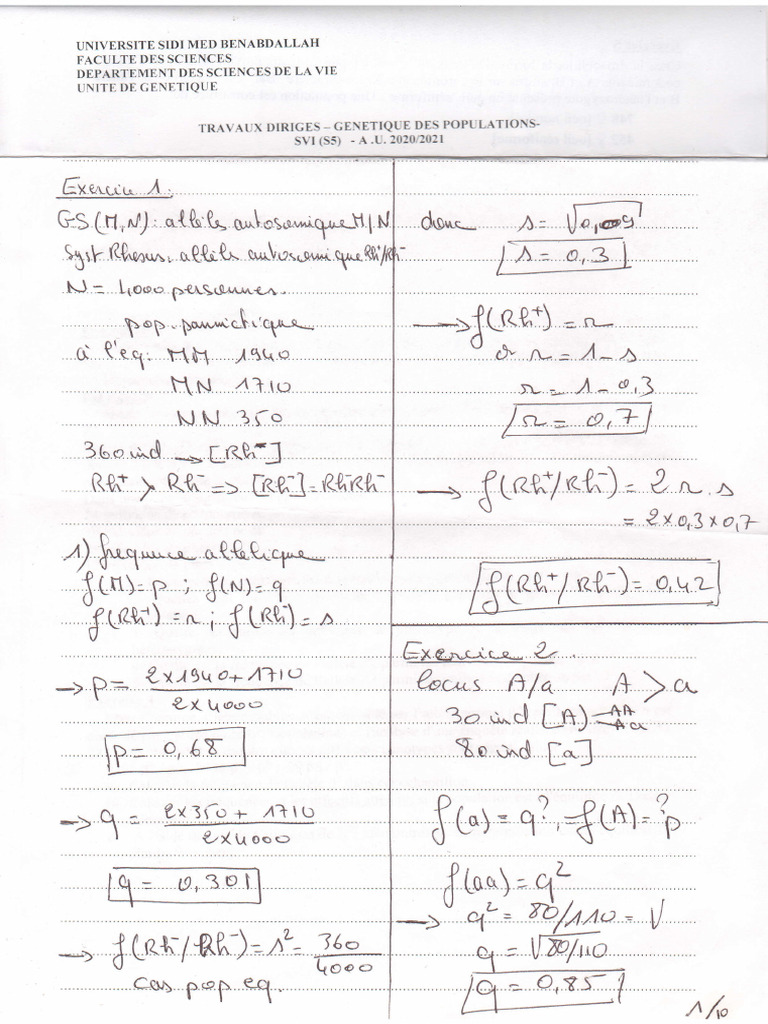 UNIVERSITE SIDI MED BENABDALLAH
FACULTE DES SCIENCES
DEPARTEMENT DES SCIENCES DE LA VIE
UNITE DE GENETIQUE
TRAVAUX DIRIGES – GENETIQUE DES POPULATIONS-
SVI (S5) - A .U. 2020/2021
Exercice 1:
GS (M,N): allèles autosomique M/N
Syst Rhesus: allèls autosomique Rh+/Rh-
N = 4000 personnes.
pop. panmictique
à l'éq: MM 1940
MN 1710
NN 350
360 ind → [Rh-]
Rh+ > Rh- => [Rh-] = Rh-Rh-
1) frequence allelique
f(M)=p ; f(N)=q
f(Rh+)=r ; f(Rh-)=s
→ p = (2x1940+1710)/(2x4000)
p = 0,68
→ q = (2x350+1710)/(2x4000)
q = 0,301
→ f(Rh-/Rh-) = s² = 360/4000
cas pop eq.
donc s = √0,09
s = 0,3
→ f(Rh+) = r
r = 1 - s
r = 1 - 0,3
r = 0,7
→ f(Rh+/Rh-) = 2 r.s
= 2x0,3x0,7
f(Rh+/Rh-) = 0,42
Exercice 2
locus A/a A > a
30 ind [A] AA Aa
80 ind [a]
f(a) = q?, f(A) = ? p
f(aa) = q²
→ q² = 80/110 = √
q = √80/110
q = 0,85
1/10